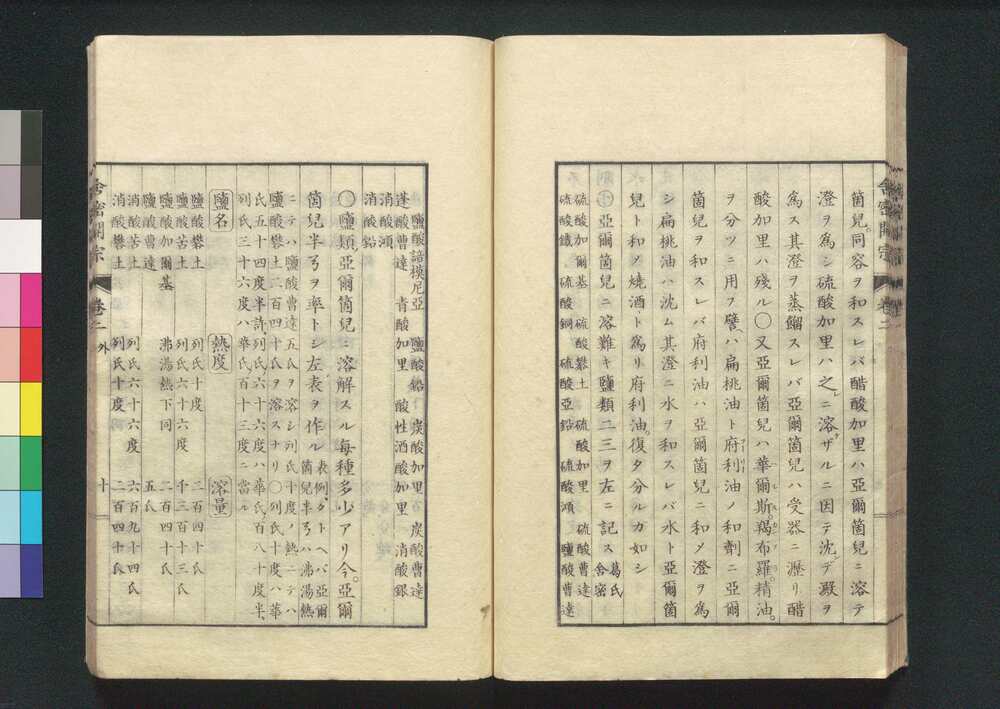 箇兒同容ヲ和スレバ醋酸加里ハ亞爾箇兒ニ溶テ
澄ヲ為シ硫酸加里ハ之ニ溶ザルニ因テ沈デ殿ヲ
為ス其澄ヲ蒸餾スレバ亞爾箇兒ハ受器ニ瀝リ醋
酸加里ハ殘ル〇又亞爾箇兒ハ華爾斯羯布羅精油
ヲ分ツニ用フ譬ハ扁桃油ト府利油ノ和劑ニ亞爾
箇兒ヲ和スレバ府利油ハ亞爾箇兒ニ和メ澄ヲ為
シ扁桃油ハ沈ム其澄ニ水ヲ和スレバ水ト亞爾箇
兒ト和メ燒酒ト為リ府利油復タ分ルカ如シ
亞爾箇兒ニ溶難キ鹽類二三ヲ左ニ記ス 葛氏舍密
硫酸加爾基 硫酸礬土 硫酸加里 硫酸曹達
硫酸鐵 硫酸銅 硫酸亞鉛 硫酸澒 鹽酸曹達
舍密開宗 卷二
鹽酸諳模尼亞 鹽酸鉛 炭酸加里 炭酸曹達
蓬酸曹達 青酸加里 酸性酒酸加里 消酸銀
消酸澒
消酸鉛
〇鹽類亞爾箇兒ニ溶解スル每種多少アリ今亞爾
箇兒半弓ヲ率トシ左表ヲ作ル 表例ノクトヘバ亞爾箇兒半弓ハ沸湯熱
ニテハ鹽酸曹達五氏ヲ溶シ列氏十度ノ熱ニテハ
鹽酸礬土二百四十氏ヲ溶スナリ〇列氏十度ハ華
氏五十四度半許列氏六十六度ハ華氏百八十度半
列氏三十六度ハ華氏百十三度ニ當ル
鹽名 熱度 溶量
鹽酸礬土 列氏十度 二百四十氏
鹽酸苦土 列氏六十六度 千三百十三氏
鹽酸加爾基 沸湯熱下同 二百四十氏
鹽酸曹達 五氏
消酸苦土 列氏六十六度 六百九十四氏
消酸礬土 列氏十度 二百四十氏
舍密開宗 卷二 外 十